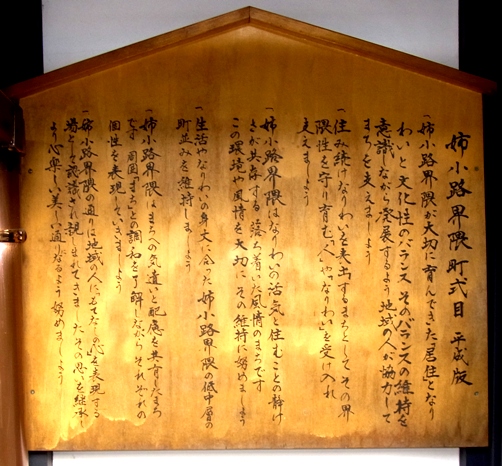 姉小路界隈町式目 平成版
一、姉小路界隈が大切に育んできた居住となり
わいと文化性のバランス そのバランスの維持を
意識しながら発展するよう 地域の人が協力して
まちを支えましょう
一、住み続けなりわいを表出するまちとして その界
隈性を守り育む「人」や「なりわい」を受け入れ
支えましょう
一、姉小路界隈はなりわいの活気と住むことの静け
さが共存する 落ち着いた風情のまちです
この環境や風情を大切に その維持に努めましょう
一、生活やなりわいの身丈に合った 姉小路界隈の低中層の
町並みを維持しましょう
一、姉小路界隈はまちへの気遣いと配慮を共有したまち
です 周囲とまちとの調和を了解しながら それぞれの
個性を表現していきましょう
一、姉小路界隈の通りは地域の人に「もてなしの心」を表現する
場として認識され親しまれてきました その心を継承し
より心奥深い美しい通りとなるよう努めましょう